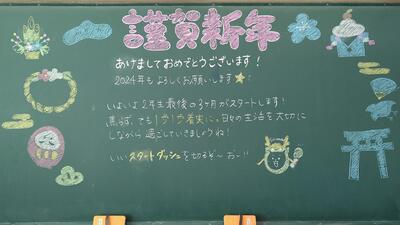 謹賀新年
あけましておめでとうございます！
2024年もよろしくお願いします
いよいよ2年生最後の3ヶ月がスタートします！
焦らず、でも1歩1歩着実に。日々の生活を大切に
しながら過ごしていきましょうね！
いいスタートダッシュを切るぞ〜おー!!